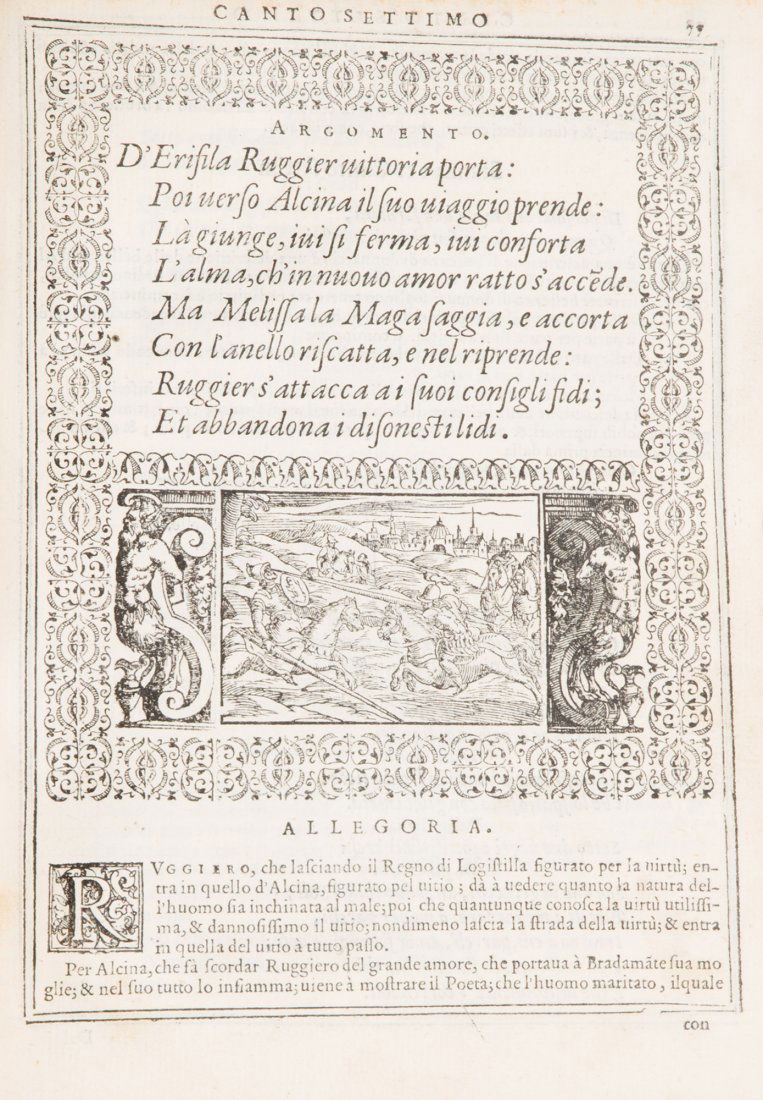 CANTO SETTIMO
ARGOMENTO.
D'Erifila Ruggier uittoria porta:
Poi uerſo Alcina il ſuo uiaggio prende:
Là giunge, iui ſi ferma, iui conforta
L'alma, ch'in nuouo amor ratto s'accẽde.
Ma Meliſſa la Maga ſaggia, e accorta
Con l'anello riſcatta, e nel riprende:
Ruggier s'attacca a i ſuoi conſigli fidi;
Et abbandona i diſoneſti lidi.
ALLEGORIA.
RVGGIERO, che laſciando il Regno di Logiſtilla figurato per la uirtù; en-
tra in quello d'Alcina, figurato pel uitio; dà à uedere quanto la natura del-
l'huomo ſia inchinata al male; poi che quantunque conoſca la uirtù utiliſſi-
ma, & dannoſiſſimo il uitio; nondimeno laſcia la ſtrada della uirtù; & entra
in quella del uitio à tutto paſſo.
Per Alcina, che fà ſcordar Ruggiero del grande amore, che portaua à Bradamãte ſua mo
glie; & nel ſuo tutto lo infiamma; uiene à moſtrare il Poeta; che l'huomo maritato, ilquale
con